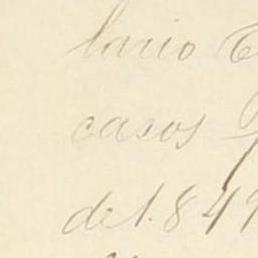 lario
casos
de 1.849